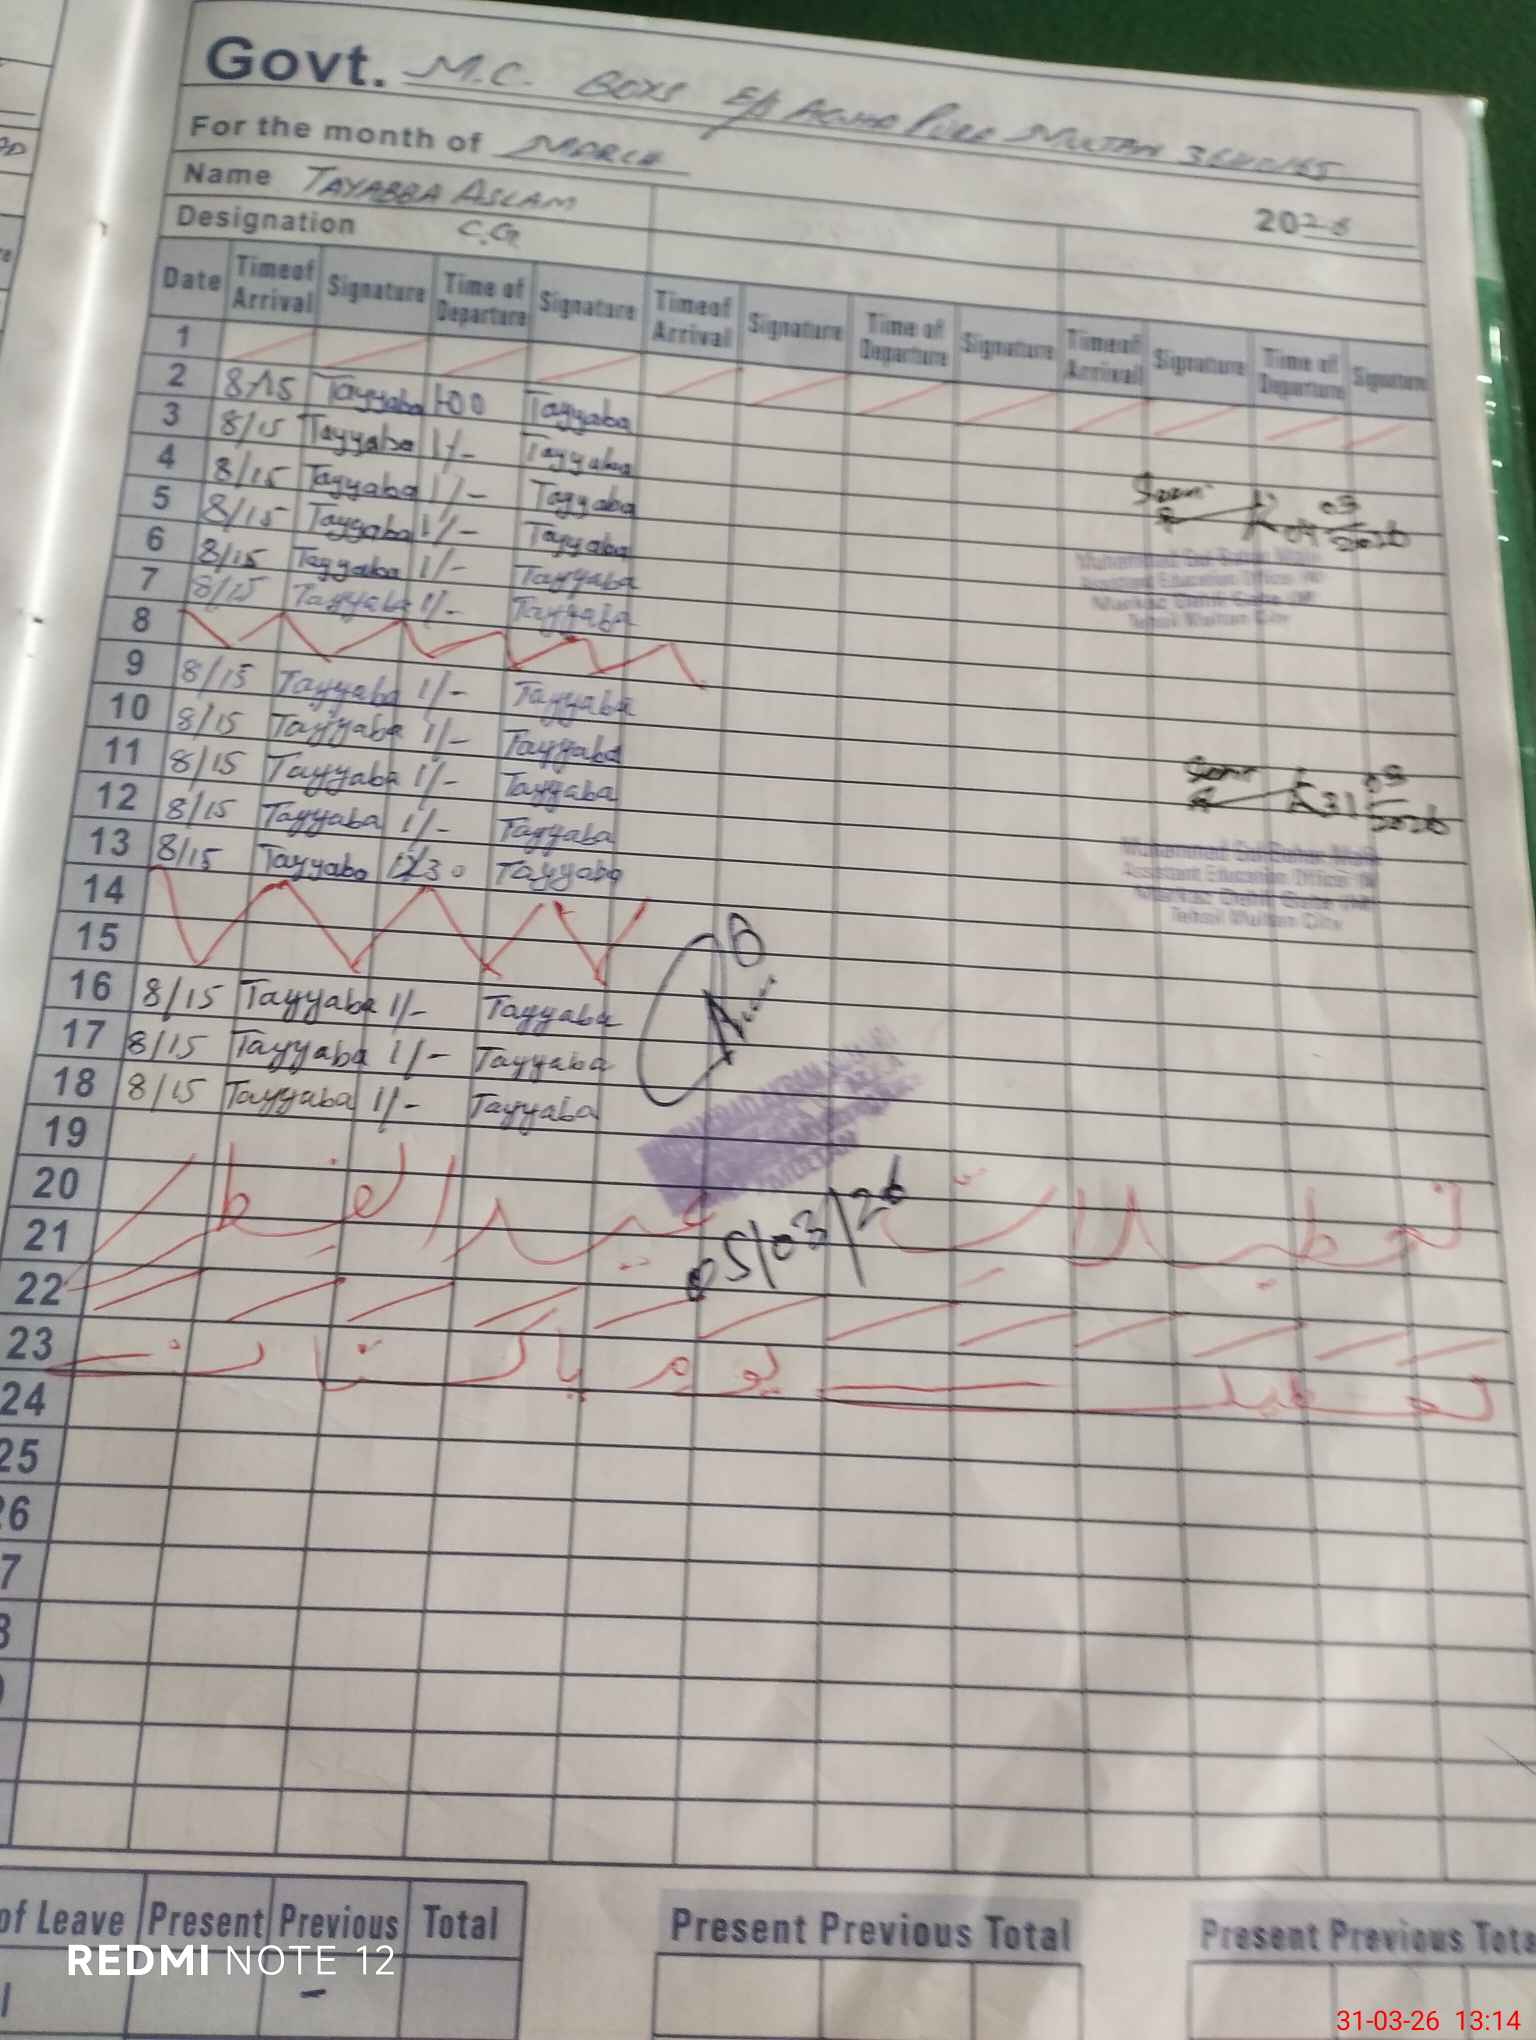 Govt. M.C. BOYS E/S AGHA PURA MULTAN
For the month of MARCH
Name TAYABBA ASLAM
2026
Designation C.G
Date Timeof Arrival Signature Time of Departure Signature Timeof Arrival Signature Time of Departure Signature Timeof Arrival Signature Time of Departure Signature
1
2 8/15 Tayyaba 1-00 Tayyaba
3 8/15 Tayyaba 1/- Tayyaba
4 8/15 Tayyaba 1/- Tayyaba
5 8/15 Tayyaba 1/- Tayyaba
6 8/15 Tayyaba 1/- Tayyaba
7 8/15 Tayyaba 1/- Tayyaba
8
9 8/15 Tayyaba 1/- Tayyaba
10 8/15 Tayyaba 1/- Tayyaba
11 8/15 Tayyaba 1/- Tayyaba
12 8/15 Tayyaba 1/- Tayyaba
13 8/15 Tayyaba 12/30 Tayyaba
14
15
16 8/15 Tayyaba 1/- Tayyaba
17 8/15 Tayyaba 1/- Tayyaba
18 8/15 Tayyaba 1/- Tayyaba
19
20
تعطیلات عید الفطر
21
05/03/26
22
23
تعطیل یوم پاکستان
24
25
26
27
Seen
03
2026
Assistant Education Officer
Tehsil Multan City
Seen
31 03
2026
Assistant Education Officer
Tehsil Multan City
of Leave Present Previous Total
Present Previous Total
Present Previous Tota
-
REDMI NOTE 12
31-03-26 13:14